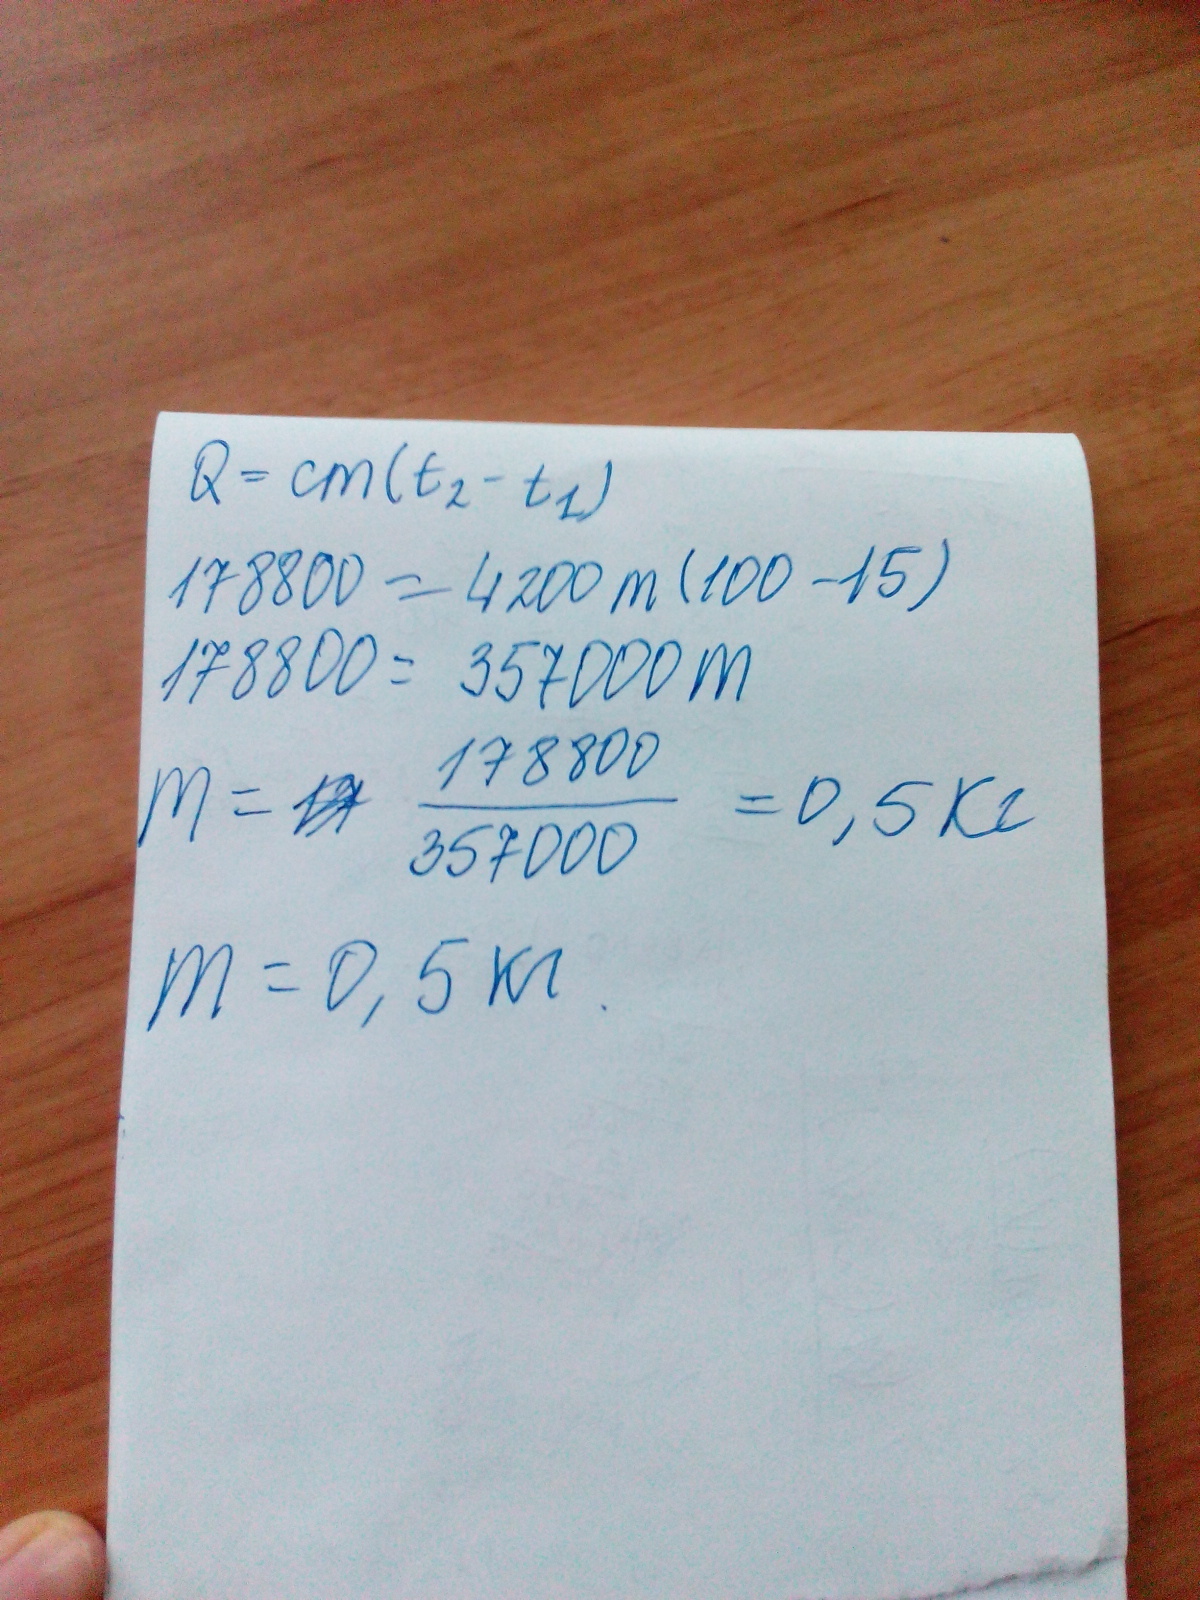 Q = cm(t₂ - t₁)
178800 = 4200 m (100 - 15)
178800 = 357000 m
m = 178800 / 357000 = 0,5 кг
m = 0,5 кг.